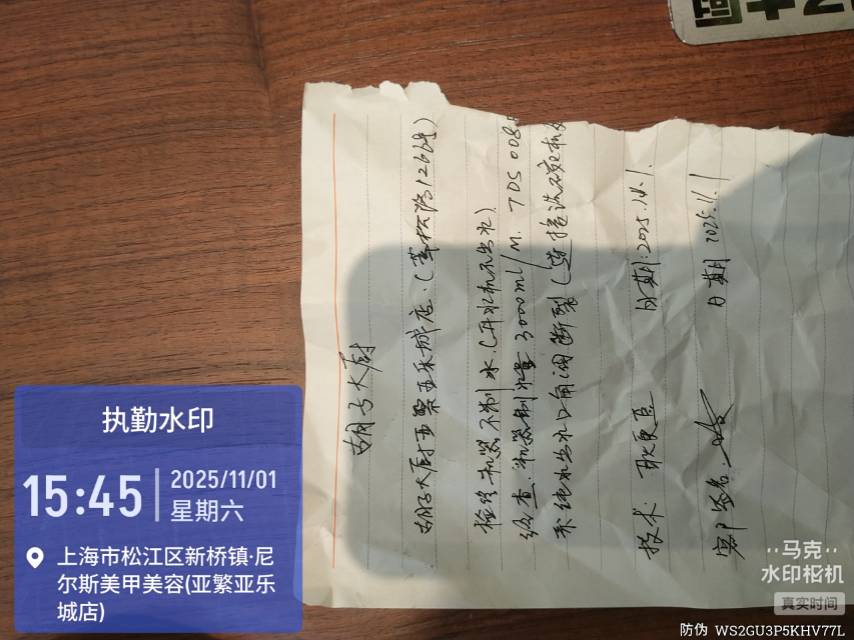 胡子大厨
胡子大厨亚繁亚乐城店.(莘松路1266号)
检修机器不制水.(开水机不出水)
经查.机器制水量3000ml/M. TDS 008.
系纯水出水口角阀断裂(连接洗碗机
技术: 日期:2025.11.1.
客户签名: 日期 2025.11.1
执勤水印
15:45
2025/11/01
星期六
上海市松江区新桥镇·尼
尔斯美甲美容(亚繁亚乐
城店)
马克
水印相机
真实时间
防伪 WS2GU3P5KHV77L